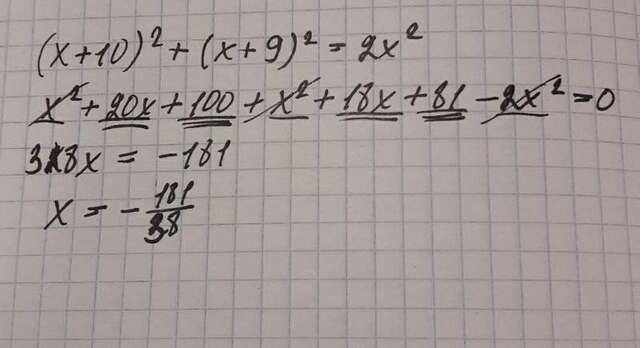 (x+10)² + (x+9)² = 2x²
x² + 20x + 100 + x² + 18x + 81 - 2x² = 0
38x = -181
x = - 181/38